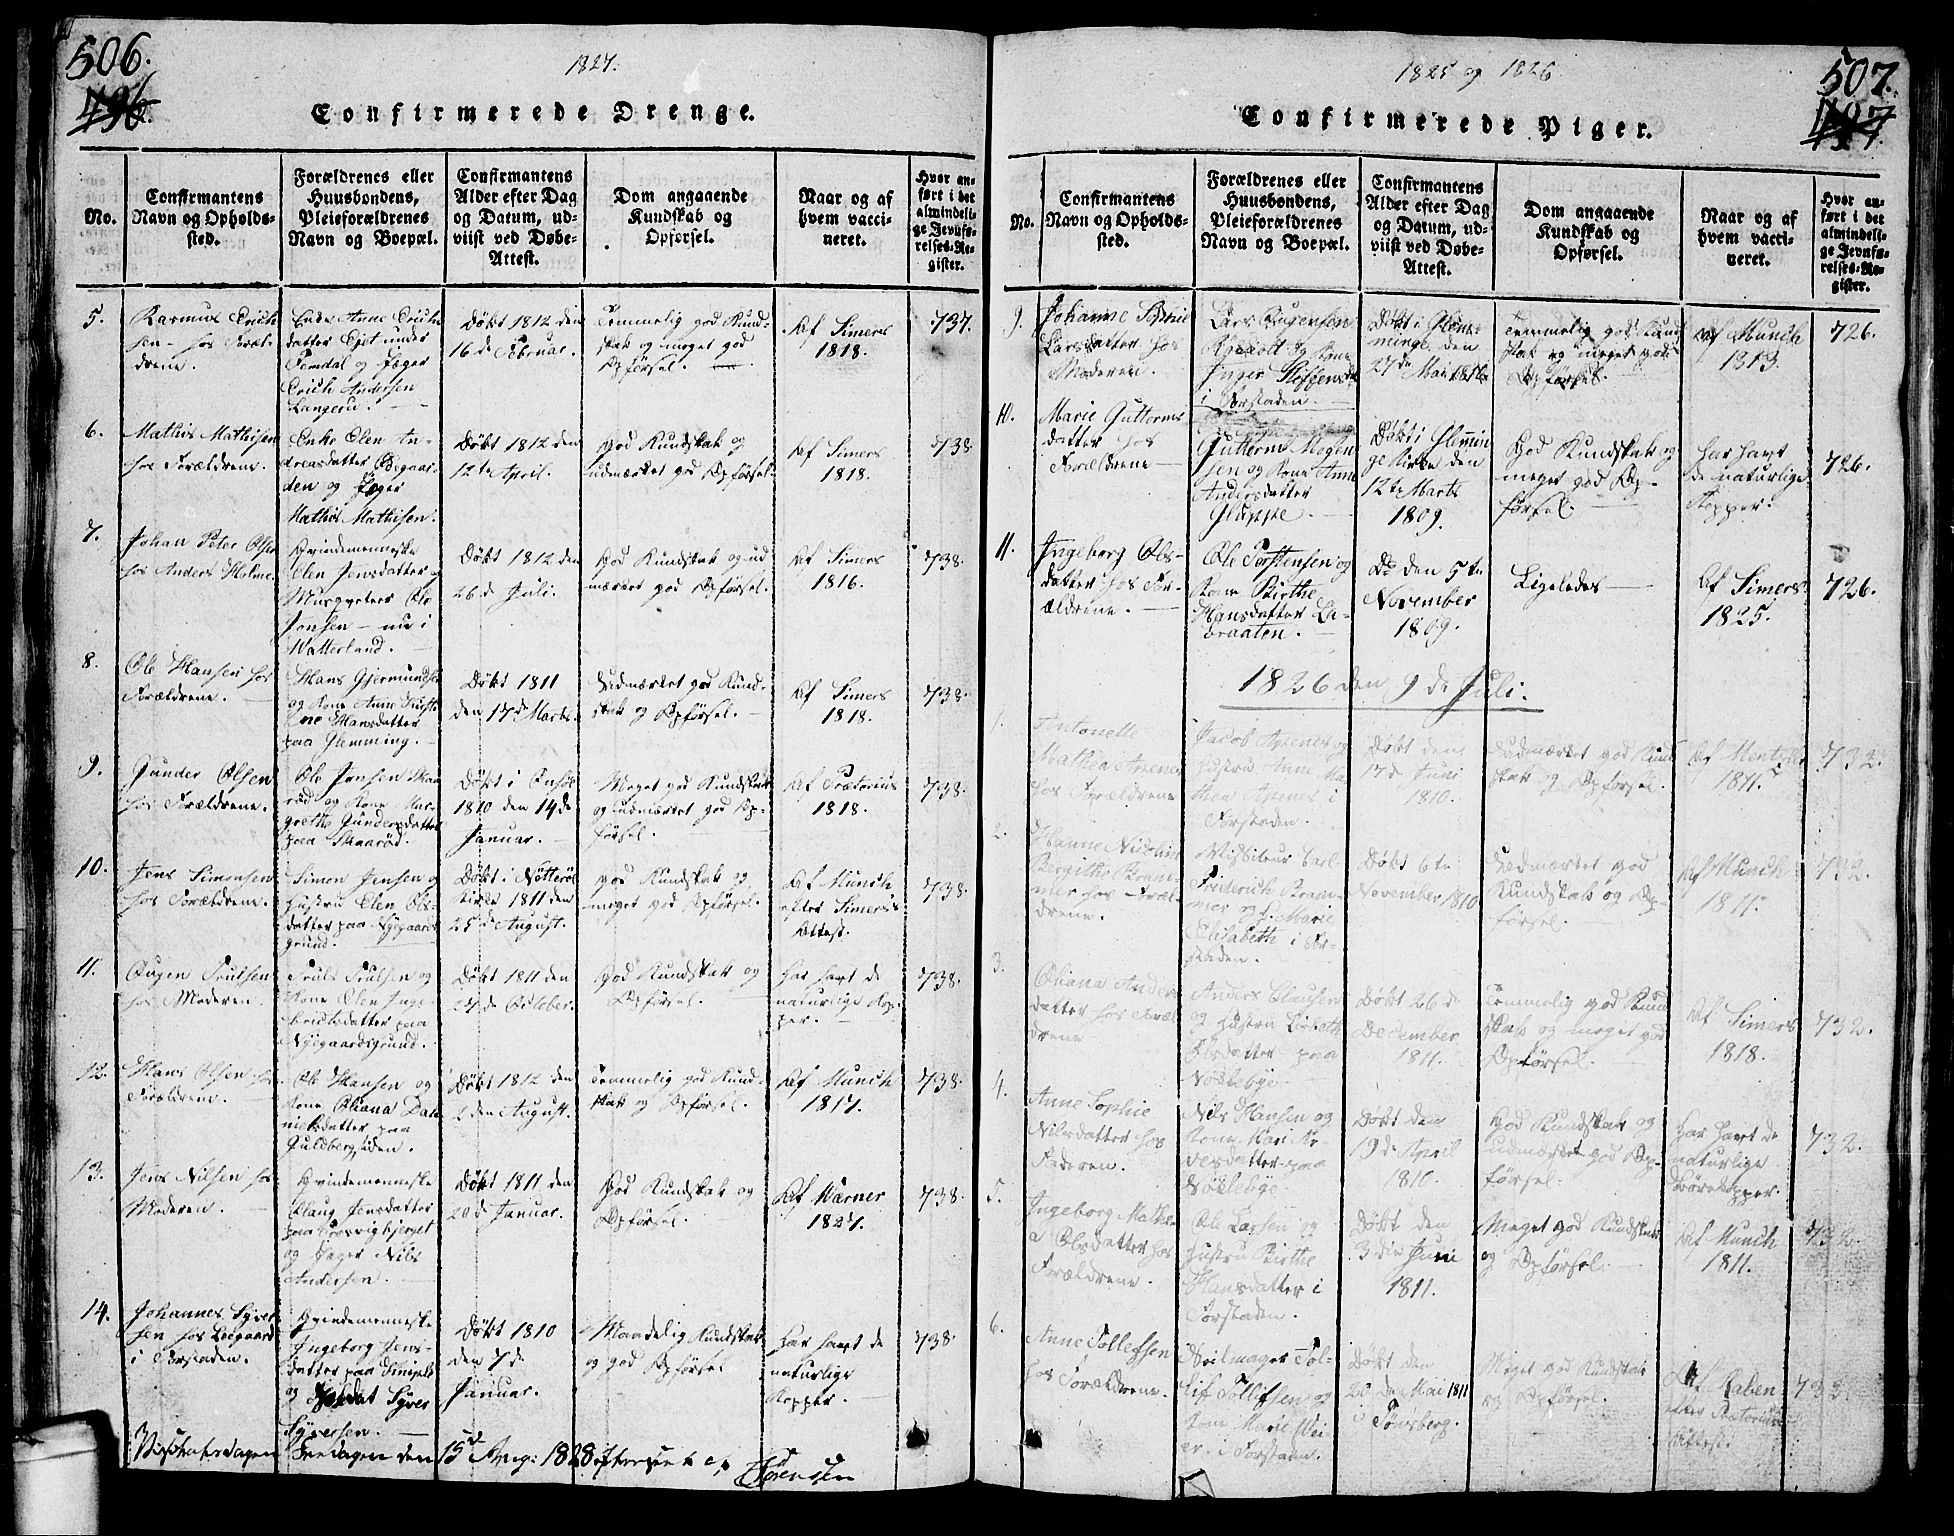 506.
496.
1827.
Confirmerede Drenge.
No.
Confirmantens
Navn og Opholds-
sted.
Forældrenes eller
Huusbondens,
Pleieforældrenes
Navn og Boepæl.
Confirmantens
Alder efter Dag
og Datum, ud-
viist ved Døbe-
Attest.
Dom angaaende
Kundskab og
Opførsel.
Naar og af
hvem vacci-
neret.
Hvor an-
ført i det
almindeli-
ge Jevnfø-
relses-Re-
gister.
5.
Rasmus Erich
sen hos Foræl-
drene.
Enke Anne Erichs
datter Ejet under
Femdal og Jæger
Erich Andersen
Langerud.
Døbt 1812 den
16de Februar.
Temmelig god Kund-
skab og meget god
Opførsel.
Af Simers
1818.
737.
6.
Mathis Mathisen
hos Forældrene.
Enke Elen An-
dreasdatter
den og Jæger
Mathis Mathisen.
Døbt 1812 den
12te April.
God Kundskab og
udmærket god Opførsel.
Af Simers
1818.
738
7.
Johan Peter Olsen
hos Anders Holme.
Qvindemenneske
Elen Jensdatter og
Murmester Ole
Jonsen – nu i
Watterland.
Døbt 1812 den
26de Juli.
God Kundskab og ud
mærket god Opførsel.
Af Simers
1816.
738.
8.
Ole Hansen hos
Forældrene.
Hans Gjermundsen
og Kone Anne Kirsti
ne Hansdatter
paa Glemming.
Døbt 1811
den 17de Marts.
Udmærket god Kund-
skab og Opførsel.
Af Simers
1818.
738.
9.
Gunder Olsen
hos Forældrene.
Ole Jonsen Skaa
rød og Kone Mar-
grethe Gundersdatter
paa Skaarød.
Døbt i Onsøe
1810 den 14de
Januar.
Meget god Kundskab
og udmærket god Op-
førsel.
Af Prætorius
1818.
738.
10.
Jens Simonsen
hos Forældrene.
Simon Jensen og
Hustru Elen Ols-
datter paa Nygaards
grund.
Døbt i Nøtterøe
Kirke 1811 den
25de August.
God Kundskab og
meget god Opførsel.
Af Munch
efter Simers's
Attest.
738.
11.
Truelsen
hos Moderen.
Truls Trulsen og
Kone Elen Inge-
brictsdatter paa
Nygaardsgrund.
Døbt 1811 den
24de October.
God Kundskab og
Opførsel.
Har havt de
naturlige Kop-
per.
738.
12.
Hans Olsen hos
Forældrene.
Ole Hansen og
Kone Oliana Da-
nielsdatter paa
Guldbergsiden.
Døbt 1812 den
2den August.
Temmelig god Kund-
skab og Opførsel.
Af Munch
1817.
738.
13.
Jens Nilsen hos
Moderen.
Qvindemenneske
Olaug Jensdatter
paa Trosvigbjerget
og Jæger Nils
Andersen.
Døbt 1811 den
20de Januar.
God Kundskab og
Opførsel.
Af Wærner
1827.
738.
14.
Johannes Syver
sen hos Leegaard
i Forstaden.
Qvindemenneske
Ingeborg Jens-
datter paa
og Soldat Syver
Syversen.
Døbt 1810
den 7de
Januar.
Maadelig Kundskab
og god Opførsel
Har havt de
naturlige
Kopper.
738.
Visitatsdagen Fredagen den 15de Aug: 1828 efterseet af Sørenssen
507.
497.
1825 og 1826
Confirmerede Piger.
No.
Confirmantens
Navn og Opholds-
sted.
Forældrenes eller
Huusbondens,
Pleieforældrenes
Navn og Boepæl.
Confirmantens
Alder efter Dag
og Datum, ud-
viist ved Døbe-
Attest.
Dom angaaende
Kundskab og
Opførsel.
Naar og af
hvem vacci-
neret.
Hvor an-
ført i det
almindeli-
ge Jevnfø-
relses-Re-
gister.
9.
Johanne Sophie
Larsdatter hos
Moderen.
Lars
og Kone
Inger Steffensd
i Forstaden.
Døbt i Glem-
minge den
27de Mai
Temmelig god Kund
skab og meget god
Opførsel.
Af Munch
1813.
726.
10.
Marie Guttorms
datter hos
Forældrene
Guttorm Mogen
sen og Kone Anne
Andersdatter
Gluppe.
Døbt i Glemmin
ge Kirke den
12te Marts
1809.
God Kundskab og
meget god Op-
førsel.
Har havt
de naturlige
Kopper.
726.
11.
Ingeborg Ols-
datter hos For-
ældrene.
Ole Torstensen og
Kone Birthe
Hansdatter La-
braaten.
Do den 5te
November
1809.
Ligeledes
Af Simers
1825.
726.
1826 den 9de Juli.
1.
Antonette
Mathea Arenes
hos Forældrene
Jacob Arenes og
Hustru Anne Ma
thea Arenes i
Forstaden.
Døbt den
17de Juni
1810.
Udmærket god Kund
skab og Opførsel.
Af
1811.
732.
2.
Hanne Nicoline
Bergithe Bram-
mer hos Foræl-
drene.
Visiteur Carl
Friderich Bram-
mer og H. Marie
Elisabeth i For-
staden.
Døbt 6te
November 1810
Udmærket god
Kundskab og Op-
førsel.
Af Munch
1811.
732.
3.
Oliana Anders
datter hos Foræl
drene
Anders Clausen
og Hustru Lisbeth
Olsdatter paa
Nøklebye.
Døbt 26de
December
1811.
Temmelig god Kund
skab og meget god
Opførsel.
Af Simers
1818.
732.
4.
Anne Sophie
Nilsdatter hos
Faderen.
Nils Hansen og
Kone Kari
paa
Nøklebye.
Døbt den
19de April
1810.
God Kundskab og
udmærket god Op-
førsel.
Har havt de
naturlige
Børnekopper.
732.
5.
Ingeborg Mathe
a Olsdatter hos
Forældrene.
Ole Larsen og
Hustru Birthe
Hansdatter i
Forstaden.
Døbt den
3die Juni
1811.
Meget god Kundskab
og Opførsel.
Af Munch
1811.
732
6.
Anne Tollefsen
hos Forældrene.
Tol-
lif Tollefsen og
Kone Marie
i Forstaden.
Døbt den
20de Mai 1811
i Tønsberg.
Meget god Kundskab
og Opførsel.
Af Raben
efter Prætorius
Attest.
732